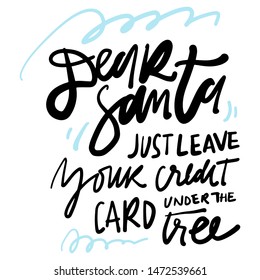 Dear
Santa
JUST LEAVE
your credit
CARD UNDER THE
tree
shutterstock.com · 1472539661